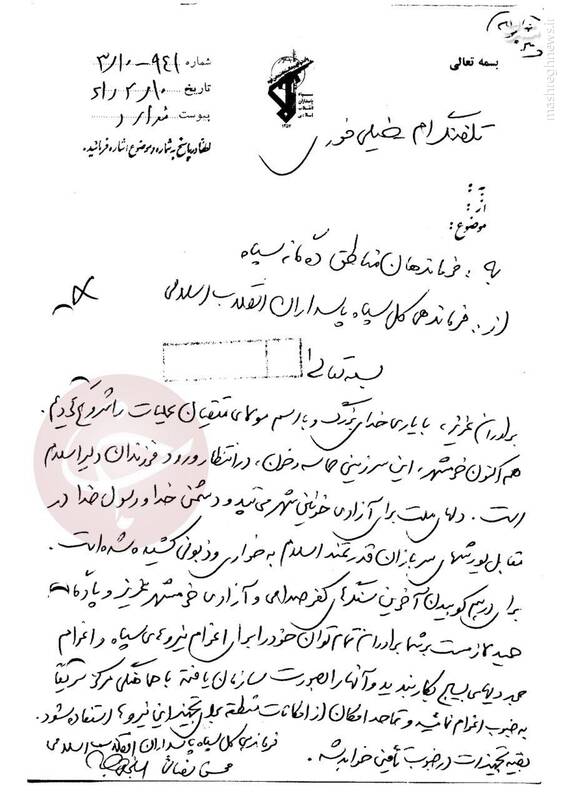 بسمه تعالی
شماره ۹۴۱-۳/۱۰
تاریخ ۶۱/۲/۱۰
پیوست ندارد
لطفا در پاسخ به شماره و موضوع اشاره فرمائید.
تلفنگرام خیلی فوری
به:
از:
موضوع:
به: فرماندهان مناطق ده گانه سپاه
از: فرماندهی کل سپاه پاسداران انقلاب اسلامی
بسمه تعالی
برادران عزیز، با یاری خدای بزرگ و با اسم مولای متقیان عملیات را شروع کردیم.
هم اکنون خرمشهر، این سرزمین حماسه و خون، در انتظار ورود فرزندان دلیر اسلام
است. دلهای ملت برای آزادی خونین شهر می تپد و دشمن خدا و رسول خدا در
مقابل یورشهای سربازان قدرتمند اسلام به خواری و زبونی کشیده شده است.
برای درهم کوبیدن آخرین سنگرهای کفر صدامی و آزادی خرمشهر عزیز و پادگان
حمید لازمست شما برادران تمام توان خود را برای اعزام نیروهای سپاه و اعزام
جدیدهای بسیج بکار بندید و آنها را بصورت سازمان یافته با هماهنگی مرکز سریعاً
به جنوب اعزام نمائید و تا حد امکان از امکانات منطقه برای تجهیز این نیروها استفاده شود.
بقیه تجهیزات در جنوب تأمین خواهد شد.
فرماندهی کل سپاه پاسداران انقلاب اسلامی
محسن رضائی
mashreghnews.ir